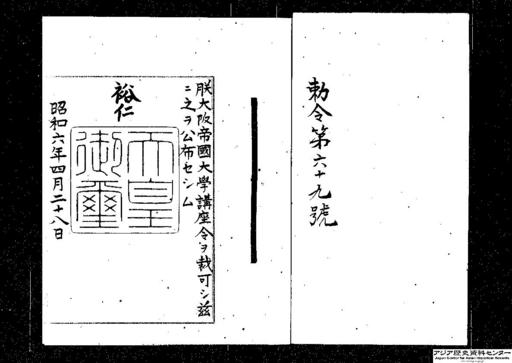 勅令第六十九號
朕大阪帝國大學講座令ヲ裁可シ茲
ニ之ヲ公布セシム
裕仁
天皇
御璽
昭和六年四月二十八日
アジア歴史資料センター
Japan Center for Asian Historical Records